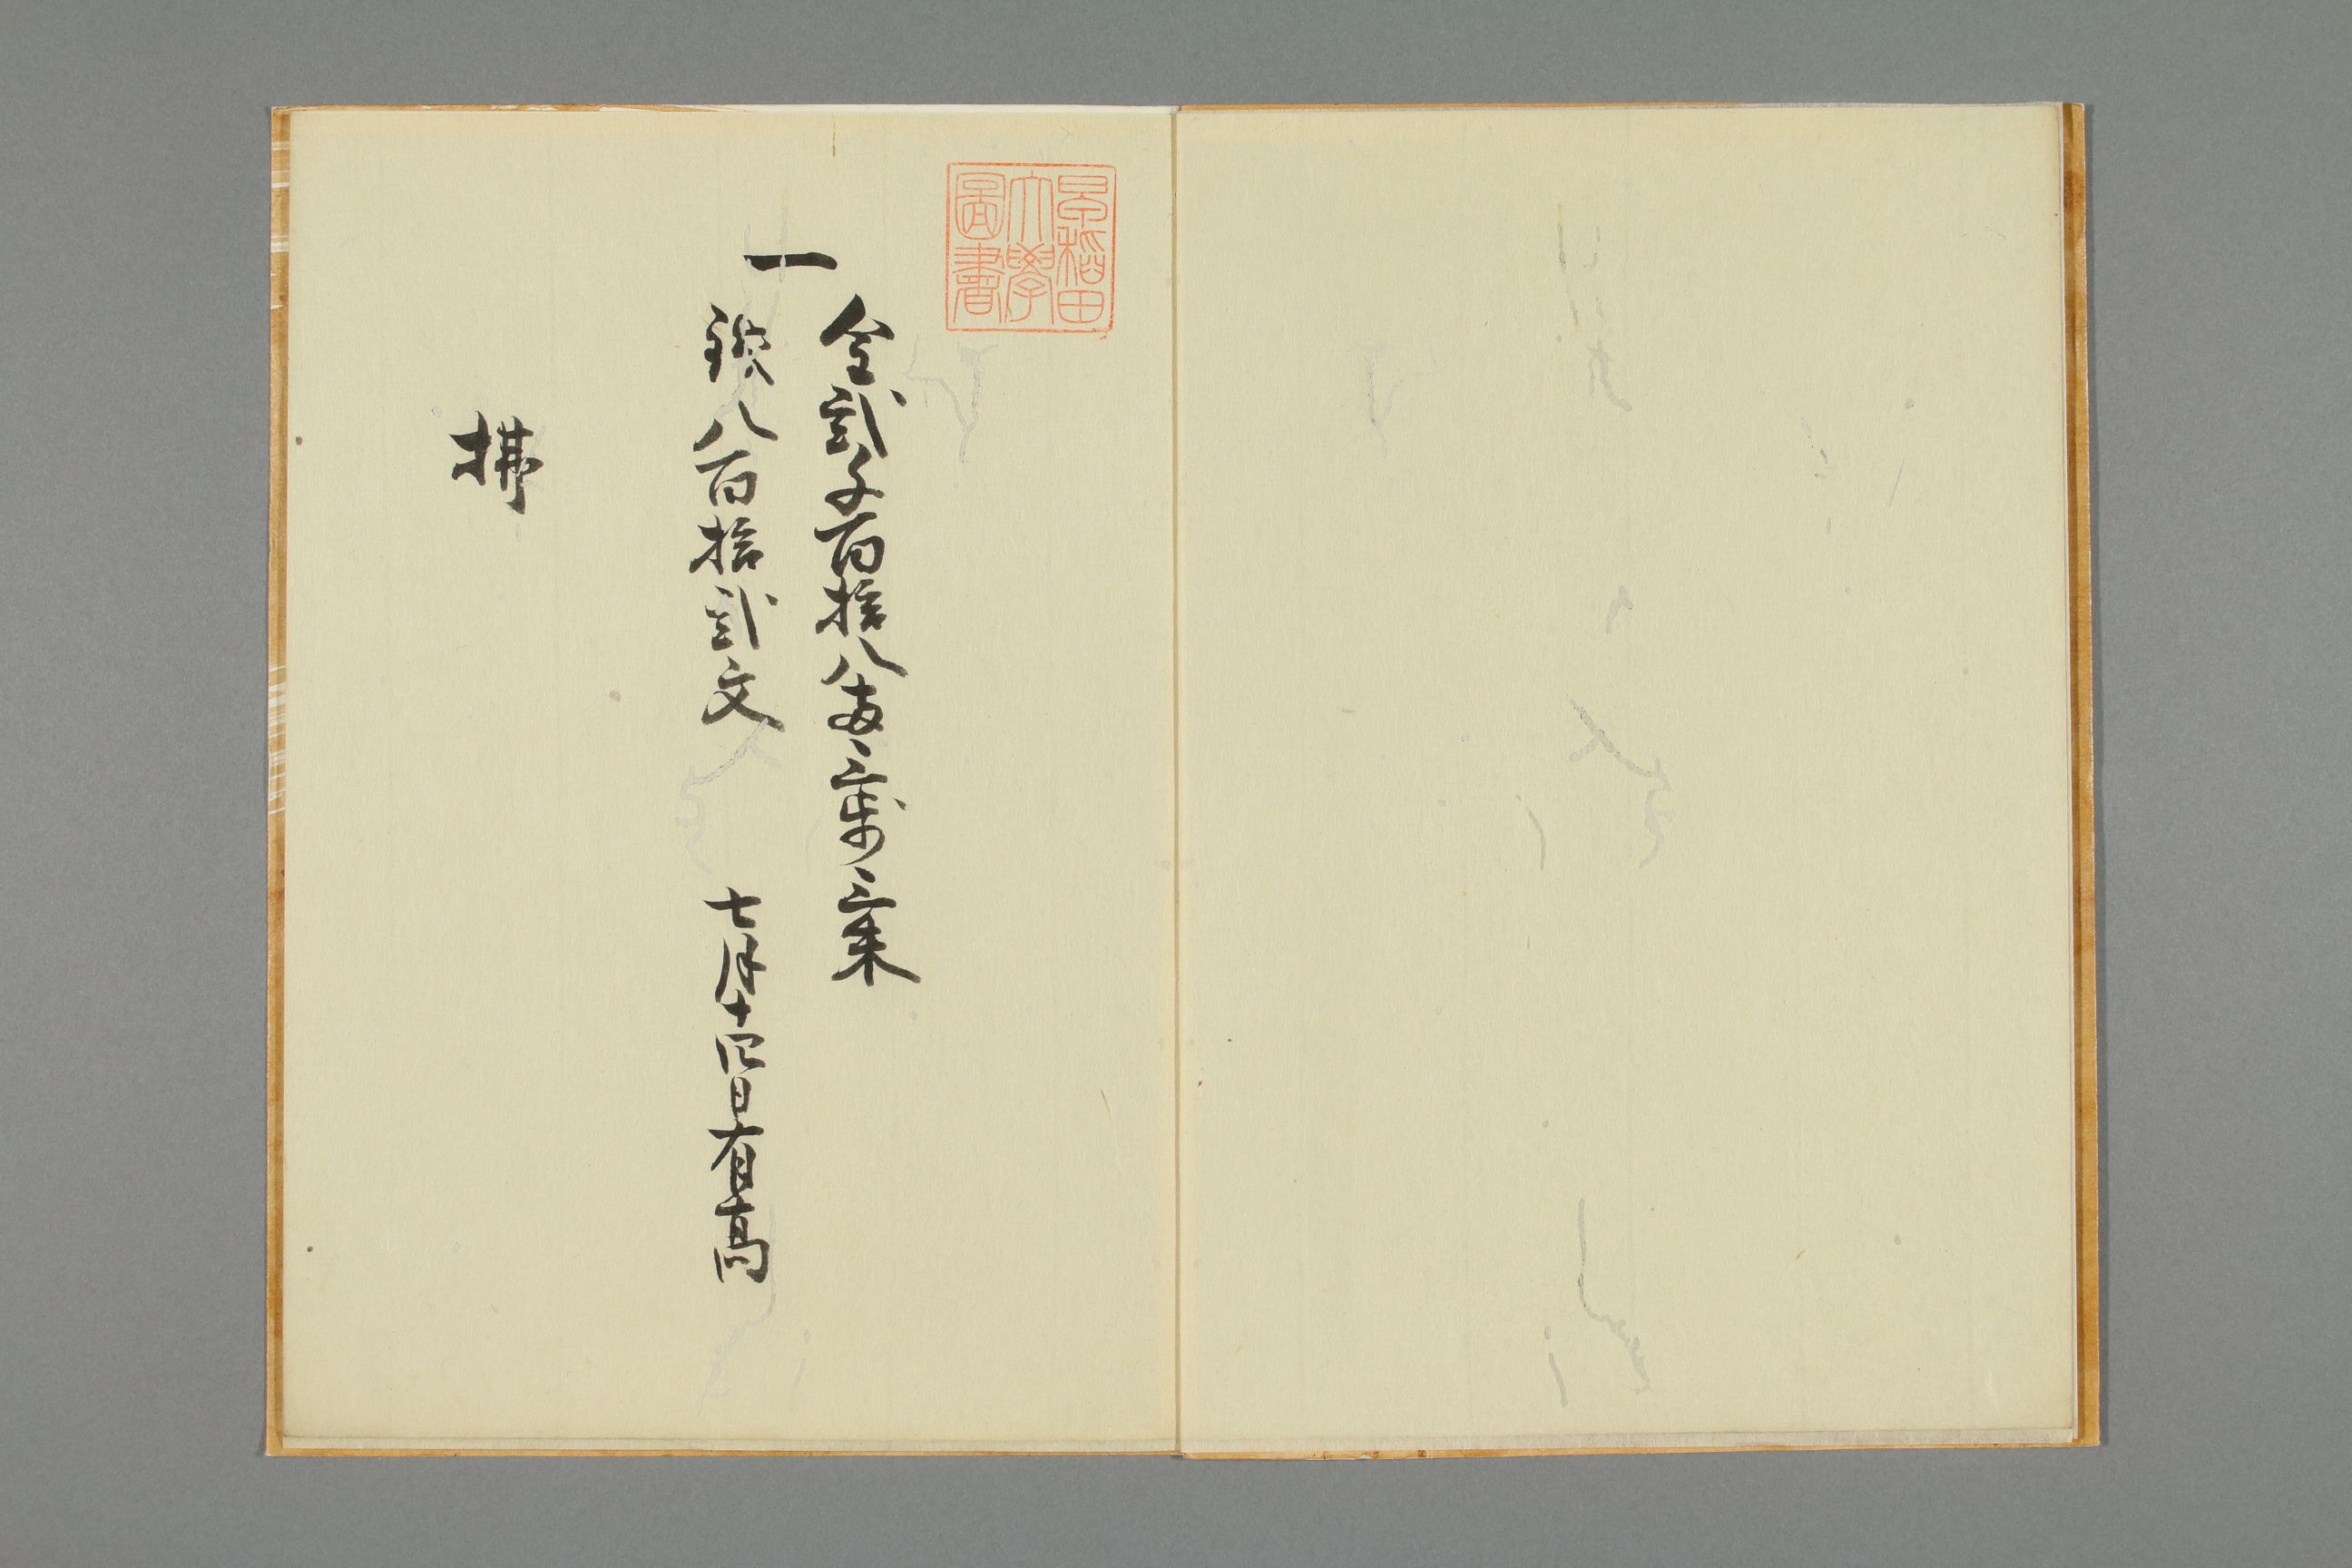 早稲田
大學
圖書
一
金弐千百拾八両三歩三朱
銭八百拾弐文
七月十四日有高
拂